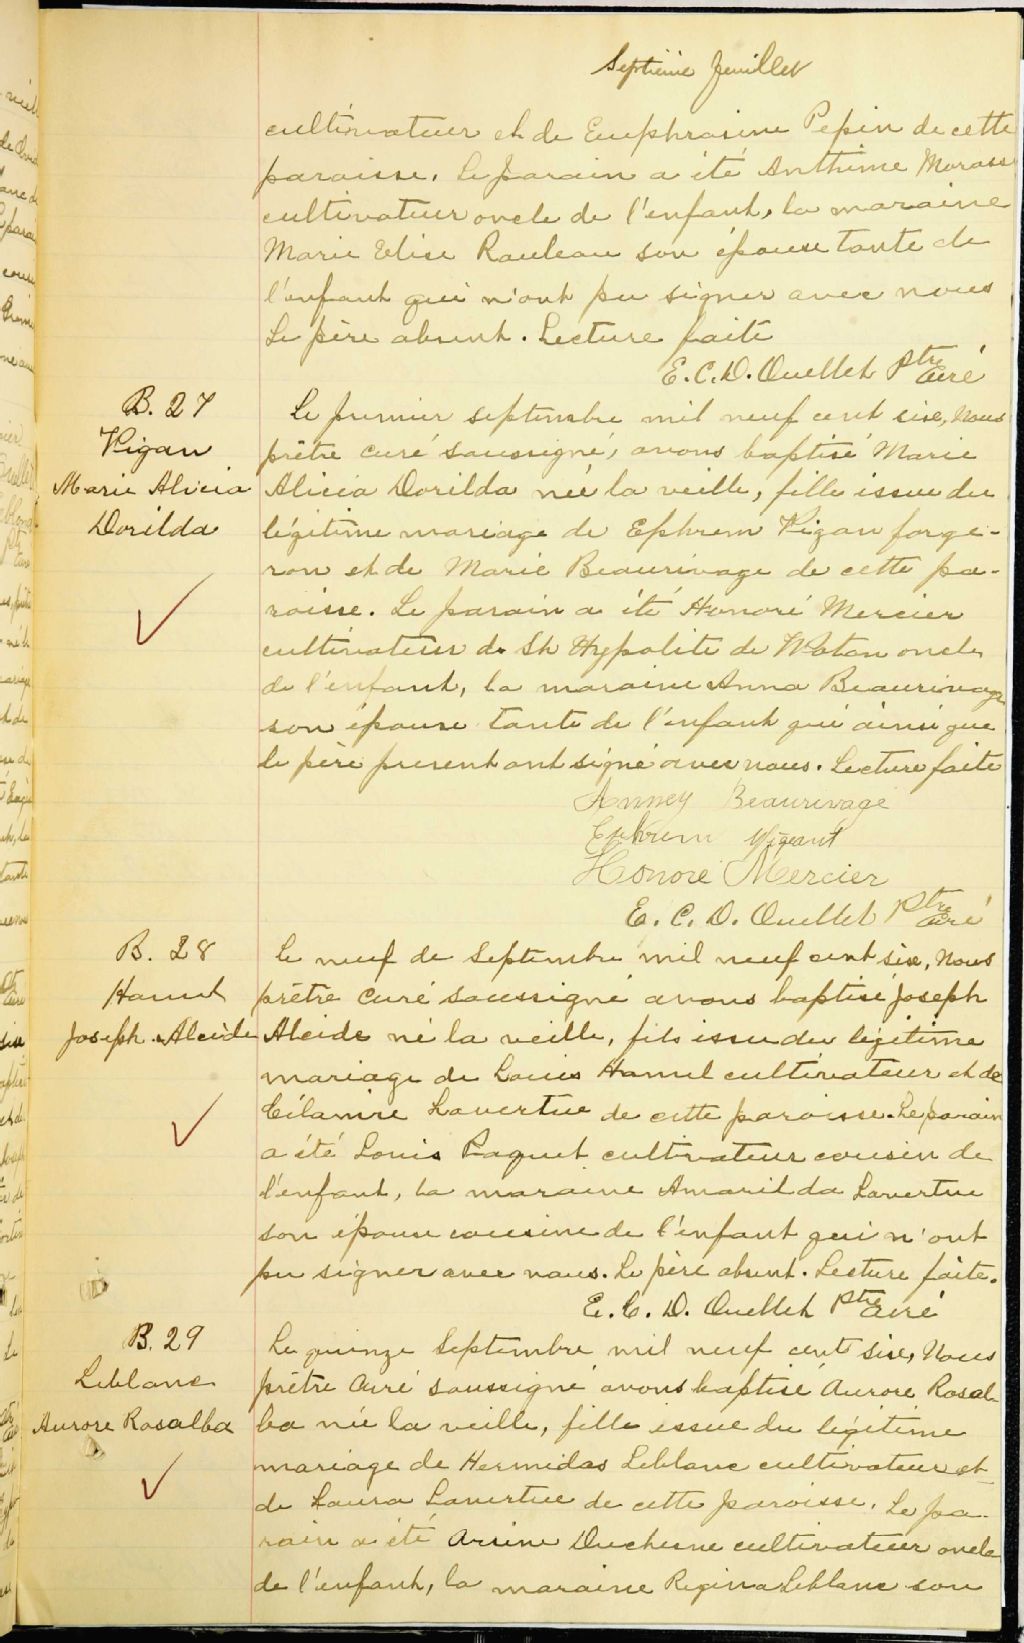 Septième feuillet
cultivateur et de Euphrasine Pepin de cette
paroisse. Le parain a été Anthime Morass
cultivateur oncle de l'enfant, la maraine
Marie Elise Rouleau son épouse tante de
l'enfant qui n'ont pu signer avec nous
Le père absent. Lecture faite
E. C. D. Ouellet Ptre curé
B. 27
Vigan
Marie Alicia
Dorilda
Le premier septembre mil neuf cent six, Nous
prêtre curé soussigné, avons baptisé Marie
Alicia Dorilda née la veille, fille issue du
légitime mariage de Ephrem Vigan forge-
ron et de Marie Beaurivage de cette pa-
roisse. Le parain a été Honoré Mercier
cultivateur de St Hypolite de Wotan oncle
de l'enfant, la maraine Anna Beaurivage
son épouse tante de l'enfant qui ainsi que
le père present ont signé avec nous. Lecture faite
Anney Beaurivage
Ephrem Vigeant
Honoré Mercier
E. C. D. Ouellet Ptre curé
B. 28
Hamel
Joseph Alcide
Le neuf de Septembre mil neuf cent six, Nous
prêtre curé soussigné avons baptisé Joseph
Alcide né la veille, fils issu du légitime
mariage de Louis Hamel cultivateur et de
Célanire Lavertue de cette paroisse. Le parain
a été Louis Paquet cultivateur cousin de
l'enfant, la maraine Amarilda Lavertue
son épouse cousine de l'enfant qui n'ont
pu signer avec nous. Le père absent. Lecture faite.
E. C. D. Ouellet Ptre curé
B. 29
Leblanc
Aurore Rosalba
Le quinze Septembre mil neuf cent six, Nous
prêtre curé soussigné avons baptisé Aurore Rosal-
ba née la veille, fille issue du légitime
mariage de Hermidas Leblanc cultivateur et
de Laura Lavertue de cette paroisse. Le pa-
rain a été Arsine Duchesne cultivateur oncle
de l'enfant, la maraine Regina Leblanc son